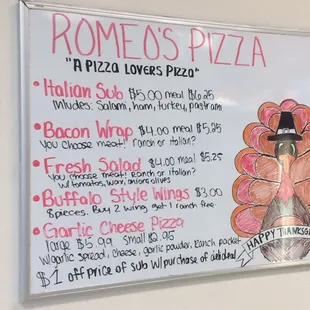 ROMEO'S PIZZA
"A PIZZA LOVERS PIZZA"
• Italian Sub $5.00 meal $6.25
Inludes: Salami, ham, turkey, pastrami
• Bacon Wrap $4.00 meal $5.25
You choose meat! ranch or italian?
• Fresh Salad $4.00 meal $5.25
You choose meat! Ranch or Italian?
w/tomatos, onions, olives
• Buffalo Style Wings $3.00
8 pieces. Buy 2 wing get 1 ranch free.
• Garlic Cheese Pizza
large $5.99 small $3.95
w/garlic spread, cheese, garlic powder, Ranch packet
$1 off price of sub w/purchase of
HAPPY THANKSGI